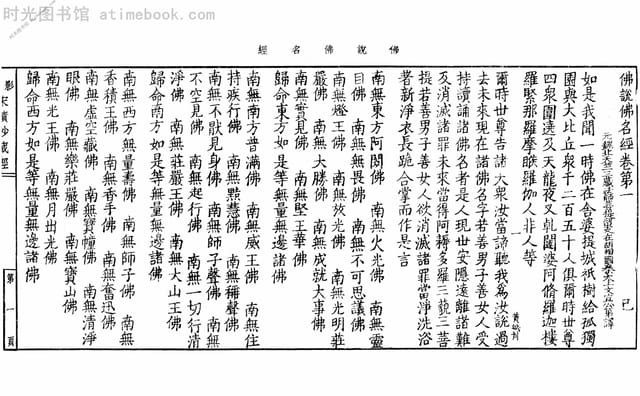 时光图书馆
atimebook.com
佛說佛名經
佛說佛名經卷第一　　己
如是我聞一時佛在舍婆提城祇樹給孤獨
園與大比丘衆千二百五十人俱爾時世尊
四衆圍遶及天龍夜叉乹闥婆阿脩羅迦樓
羅緊那羅摩睺羅伽人非人等
爾時世尊告諸大衆汝當諦聽我為汝說過
去未來現在諸佛名字若善男子善女人受
持讀誦諸佛名者是人現世安隱遠離諸難
及消滅諸罪未來當得阿耨多羅三藐三菩
提若善男子善女人欲消滅諸罪當淨洗浴
者新淨衣長跪合掌而作是言
南無東方阿閦佛　南無火光佛　南無靈
目佛　南無無畏佛　南無不可思議佛
南無燈王佛　南無放光佛　南無光明莊
嚴佛　南無大勝佛　南無成就大事佛
南無實見佛　南無堅王華佛
歸命東方如是等無量無邊諸佛
南無南方普滿佛　南無威王佛　南無住
持疾行佛　南無黠慧佛　南無稱聲佛
南無不猒見身佛　南無師子聲佛　南無
不空見佛　南無起行佛　南無一切行清
淨佛　南無莊嚴王佛　南無大山王佛
歸命南方如是等無量無邊諸佛
南無西方無量壽佛　南無師子佛　南無
香積王佛　南無香手佛　南無奮迅佛
南無虛空藏佛　南無寶幢佛　南無清淨
眼佛　南無樂莊嚴佛　南無寶山佛
南無光王佛　南無月出光佛
歸命西方如是等無量無邊諸佛
影宋磧砂藏經
第一頁